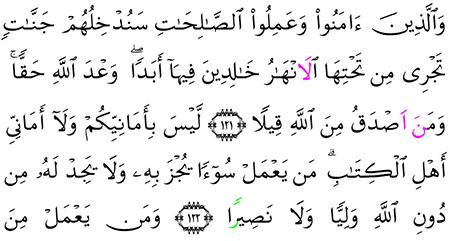 وَالَّذِينَ ءَامَنُواْ وَعَمِلُواْ الصَّٰلِحَٰتِ سَنُدْخِلُهُمْ جَنَّٰتٍ
تَجْرِى مِن تَحْتِهَا اَلَانْهَٰرُ خَٰلِدِينَ فِيهَآ أَبَداٗۖ وَعْدَ اَللَّهِ حَقّاٗۚ
وَمَنَ اَصْدَقُ مِنَ اَللَّهِ قِيلاٗ ﴿١٢١﴾ لَّيْسَ بِأَمَانِيِّكُمْ وَلَآ أَمَانِيِّ
أَهْلِ اِلْكِتَٰبِۗ مَنْ يَعْمَلْ سُوٓءاٗ يُجْزَ بِهِۦ وَلَا يَجِدْ لَهُۥ مِن
دُونِ اِللَّهِ وَلِيّاٗ وَلَا نَصِيراٗ ﴿١٢٢﴾ وَمَنْ يَعْمَلْ مِنَ